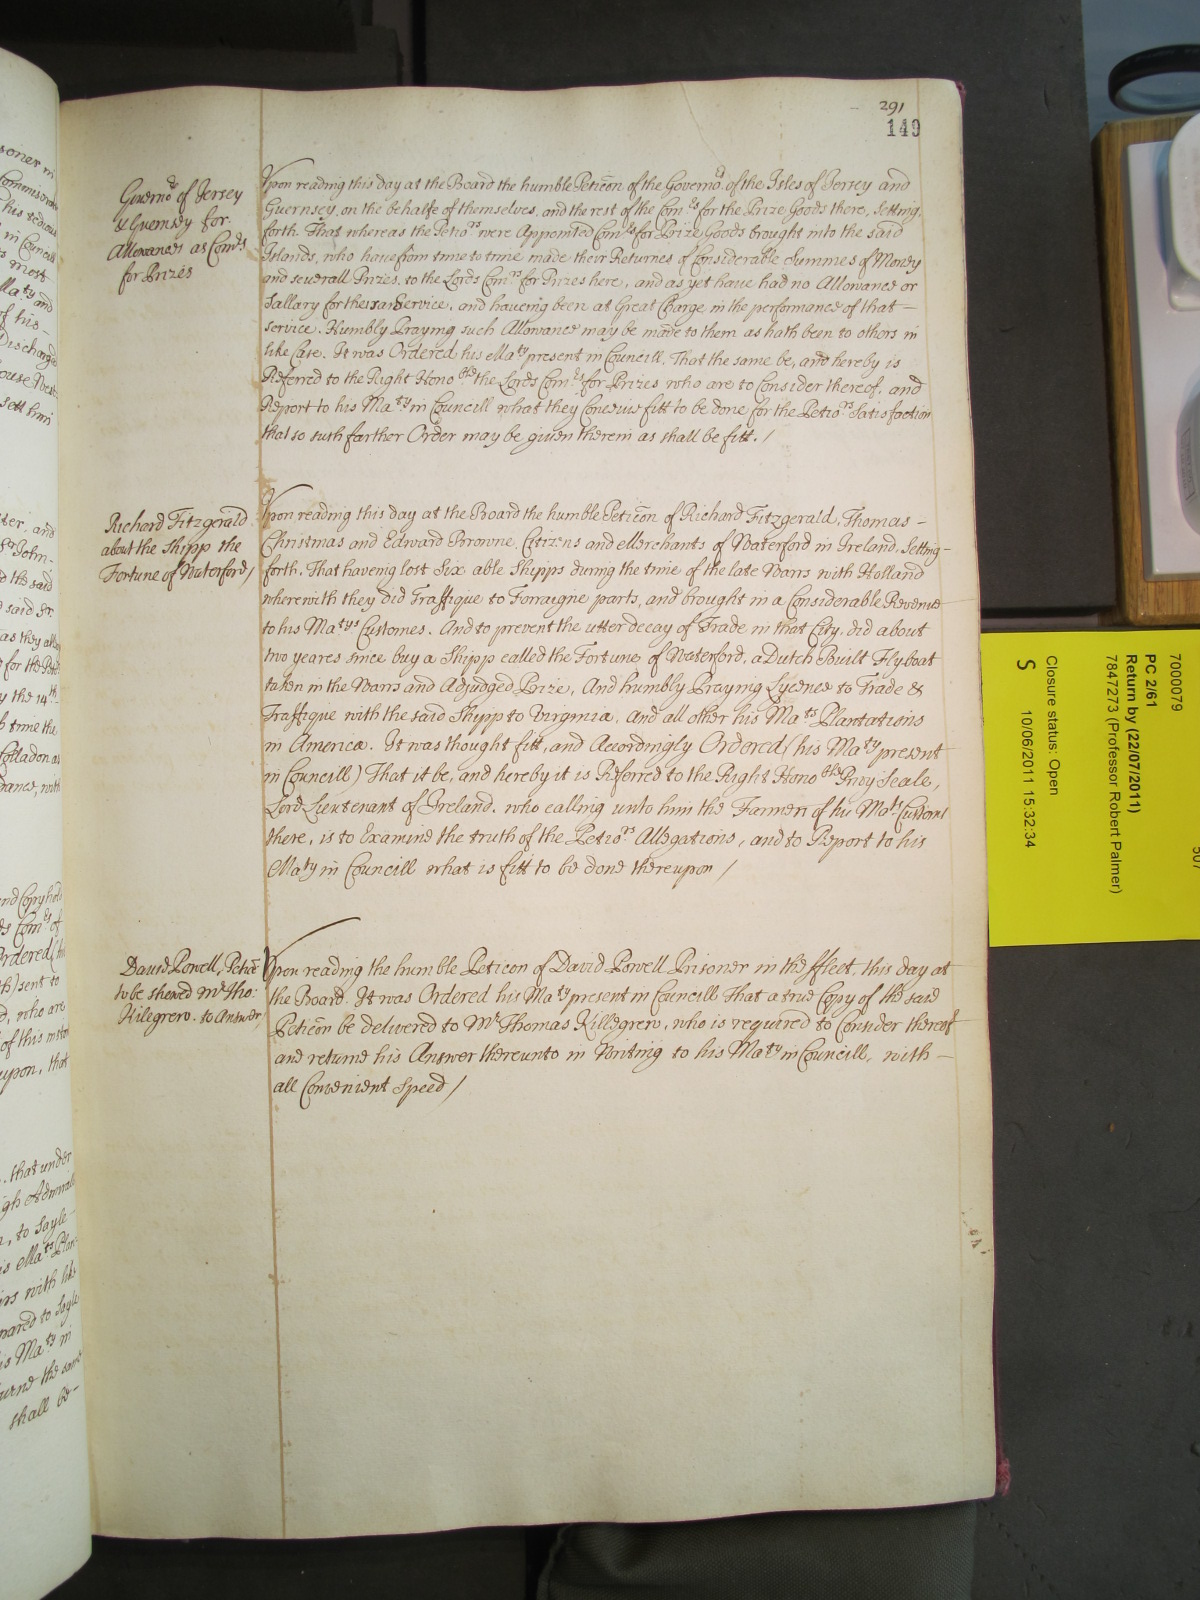 291
149
Governors of Jersey
& Guernsey for
Allowances as Comrs
for Prizes
Vpon reading this day at the Board the humble Peticõn of the Governors of the Isles of Jersey and
Guernsey, on the behalfe of themselves, and the rest of the Comrs for the Prize Goods there, Setting
forth. That whereas the Petiors were Appointed Comrs for Prize Goods brought into the said
Islands, who have from time to time made their Returnes of Considerable Summes of Money
and severall Prizes, to the Lords Comrs for Prizes here, and as yet have had no Allowance or
Sallary for their Service, and haveing been at Great Charge in the performance of that
service. Humbly Praying such Allowance may be made to them as hath been to others in
like Case. It was Ordered his Maty present in Councill, That the same be, and hereby is
Referred to the Right Honoble the Lords Comrs for Prizes who are to Consider thereof, and
Report to his Maty in Councill what they Conceive fitt to be done for the Petiors Satisfaction
that so such farther Order may be given therein as shall be fitt. /
Richard Fitzgerald
about the Shipp the
Fortune of Waterford /
Vpon reading this day at the Board the humble Peticõn of Richard Fitzgerald, Thomas
Christmas and Edward Browne, Citizens and Merchants of Waterford in Ireland, Setting
forth. That haveing lost Six able Shipps during the time of the late Warrs with Holland
wherewith they did Traffique to Forraigne parts, and brought in a Considerable Revenue
to his Matys Customes. And to prevent the utter decay of Trade in that City, did about
two yeares since buy a Shipp called the Fortune of Waterford, a Dutch Built Flyboat
taken in the Warrs and Adjudged Prize, And humbly Praying Lycence to Trade &
Traffique with the said Shipp to Virginia, and all other his Mats Plantations
in America. It was thought fitt, and Accordingly Ordered (his Maty present
in Councill) That it be, and hereby it is Referred to the Right Honoble Privy Seale,
Lord Lieutenant of Ireland, who calling unto him the Farmers of his Mats Customs
there, is to Examine the truth of the Petiors Allegations, and to Report to his
Maty in Councill what is fitt to be done thereupon /
David Powell, Peticõn
to be shewed Mr Tho:
Kilegrew. to Answer,
Vpon reading the humble Peticõn of David Powell Prisoner in the ffleet, this day at
the Board. It was Ordered his Maty present in Councill That a true Copy of the said
Peticõn be delivered to Mr Thomas Killegrew, who is required to Consider thereof
and returne his Answer thereunto in Writing to his Maty in Councill, with
all Convenient Speed /
7000079
PC 2/61
Return by (22/07/2011)
7847273 (Professor Robert Palmer)
Closure status: Open
S 10/06/2011 15:32:34